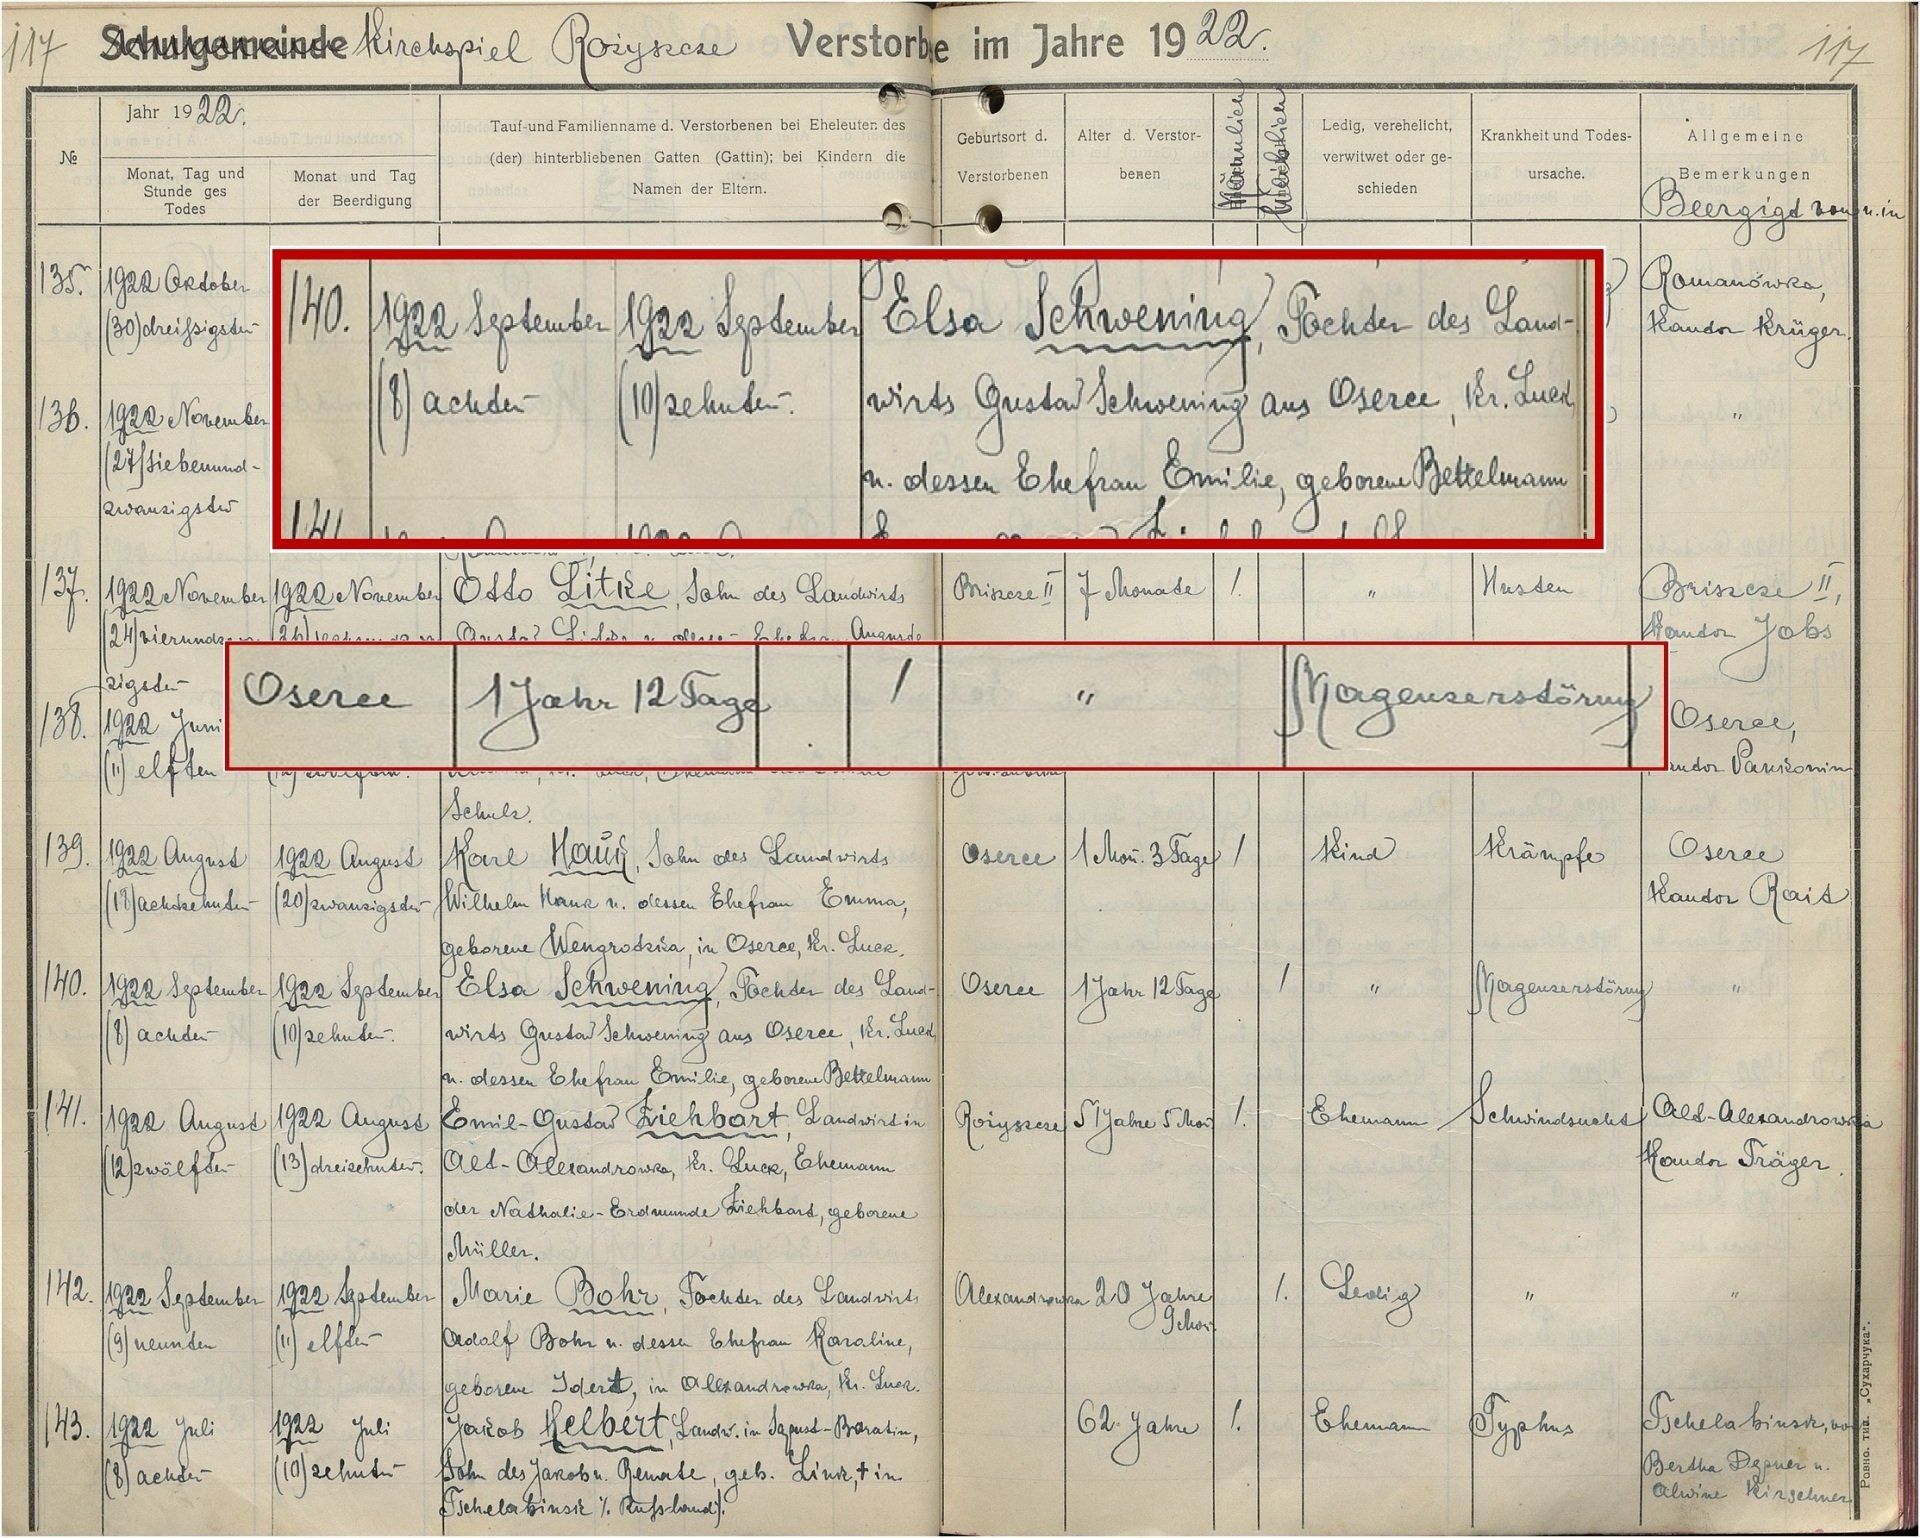 117 Schulgemeinde Kirchspiel Rożyszcze Verstorbe im Jahre 1922. 117
№
Jahr 1922.
Monat, Tag und
Stunde ges
Todes
Monat und Tag
der Beerdigung
Tauf-und Familienname d. Verstorbenen bei Eheleuten des
(der) hinterbliebenen Gatten (Gattin); bei Kindern die
Namen der Eltern.
Geburtsort d.
Verstorbenen
Alter d. Verstor-
benen
Männlich
Weiblich
Ledig, verehelicht,
verwitwet oder ge-
schieden
Krankheit und Todes-
ursache.
Allgemeine
Bemerkungen
Beergigd von u. in
135. 1922 Oktober
(30) dreißigsten
Romanówka,
Kandor Krüger.
140. 1922 September 1922 September Elsa Schwening, Tochter des Land-
(8) achten (10) zehnten. wirts Gustav Schwening aus Oserce, Kr. Luck
u. dessen Ehefrau Emilie, geborene Bettelmann
141.
136. 1922 November "
(27) siebenund-
zwanzigsten
137. 1922 November 1922 November Otto Litke, Sohn des Landwirts Briszcze II 7 Monate 1. " Husten Briszcze II,
(24) vierundzwan
zigsten
Kandor Jabs
Oserce 1 Jahr 12 Tage 1 " Magenzerstörung
138. 1922 Juni Oserce,
(11) elften
Schulz.
139. 1922 August 1922 August Karl Hauk, Sohn des Landwirts Oserce 1 Mon. 3 Tage 1 Kind Krämpfe Oserce
(18) achtzehnten (20) zwanzigsten Wilhelm Hauk u. dessen Ehefrau Emma, Kandor Rait
geborene Wengrodzka, in Oserce, Kr. Luck.
140. 1922 September 1922 September Elsa Schwening, Tochter des Land- Oserce 1 Jahr 12 Tage 1 " Magenzerstörung "
(8) achten (10) zehnten. wirts Gustav Schwening aus Oserce, Kr. Luck
u. dessen Ehefrau Emilie, geborene Bettelmann
141. 1922 August 1922 August Emil-Gustav Ziehbart, Landwirt in Rożyszcze 51 Jahre 5 Mon 1. Ehemann Schwindsucht Alt-Alexandrowka
(12) zwölften (13) dreizehnten. Alt-Alexandrowka, Kr. Luck, Ehemann Kandor Träger.
der Nathalie-Erdmunde Ziehbart, geborene
Müller.
142. 1922 September 1922 September Marie Bohr, Tochter des Landwirts Alexandrowka 20 Jahre 1. Ledig " "
9 Mon.
(9) neunten (11) elften Adolf Bohr u. dessen Ehefrau Karaline,
geborene Idert, in Alexandrowka, Kr. Luck.
143. 1922 Juli 1922 Juli Jakob Helbert, Landw. in Sapust-Boratin, 62 Jahre 1. Ehemann Typhus Tschelabinsk, von
(8) achten (10) zehnten Sohn des Jakob u. Renate, geb. Link, † in Bertha Depner u.
Tschelabinsk (i. Rußland). Alwine Kirschner
Ровно. тип. „Сухарчука“.